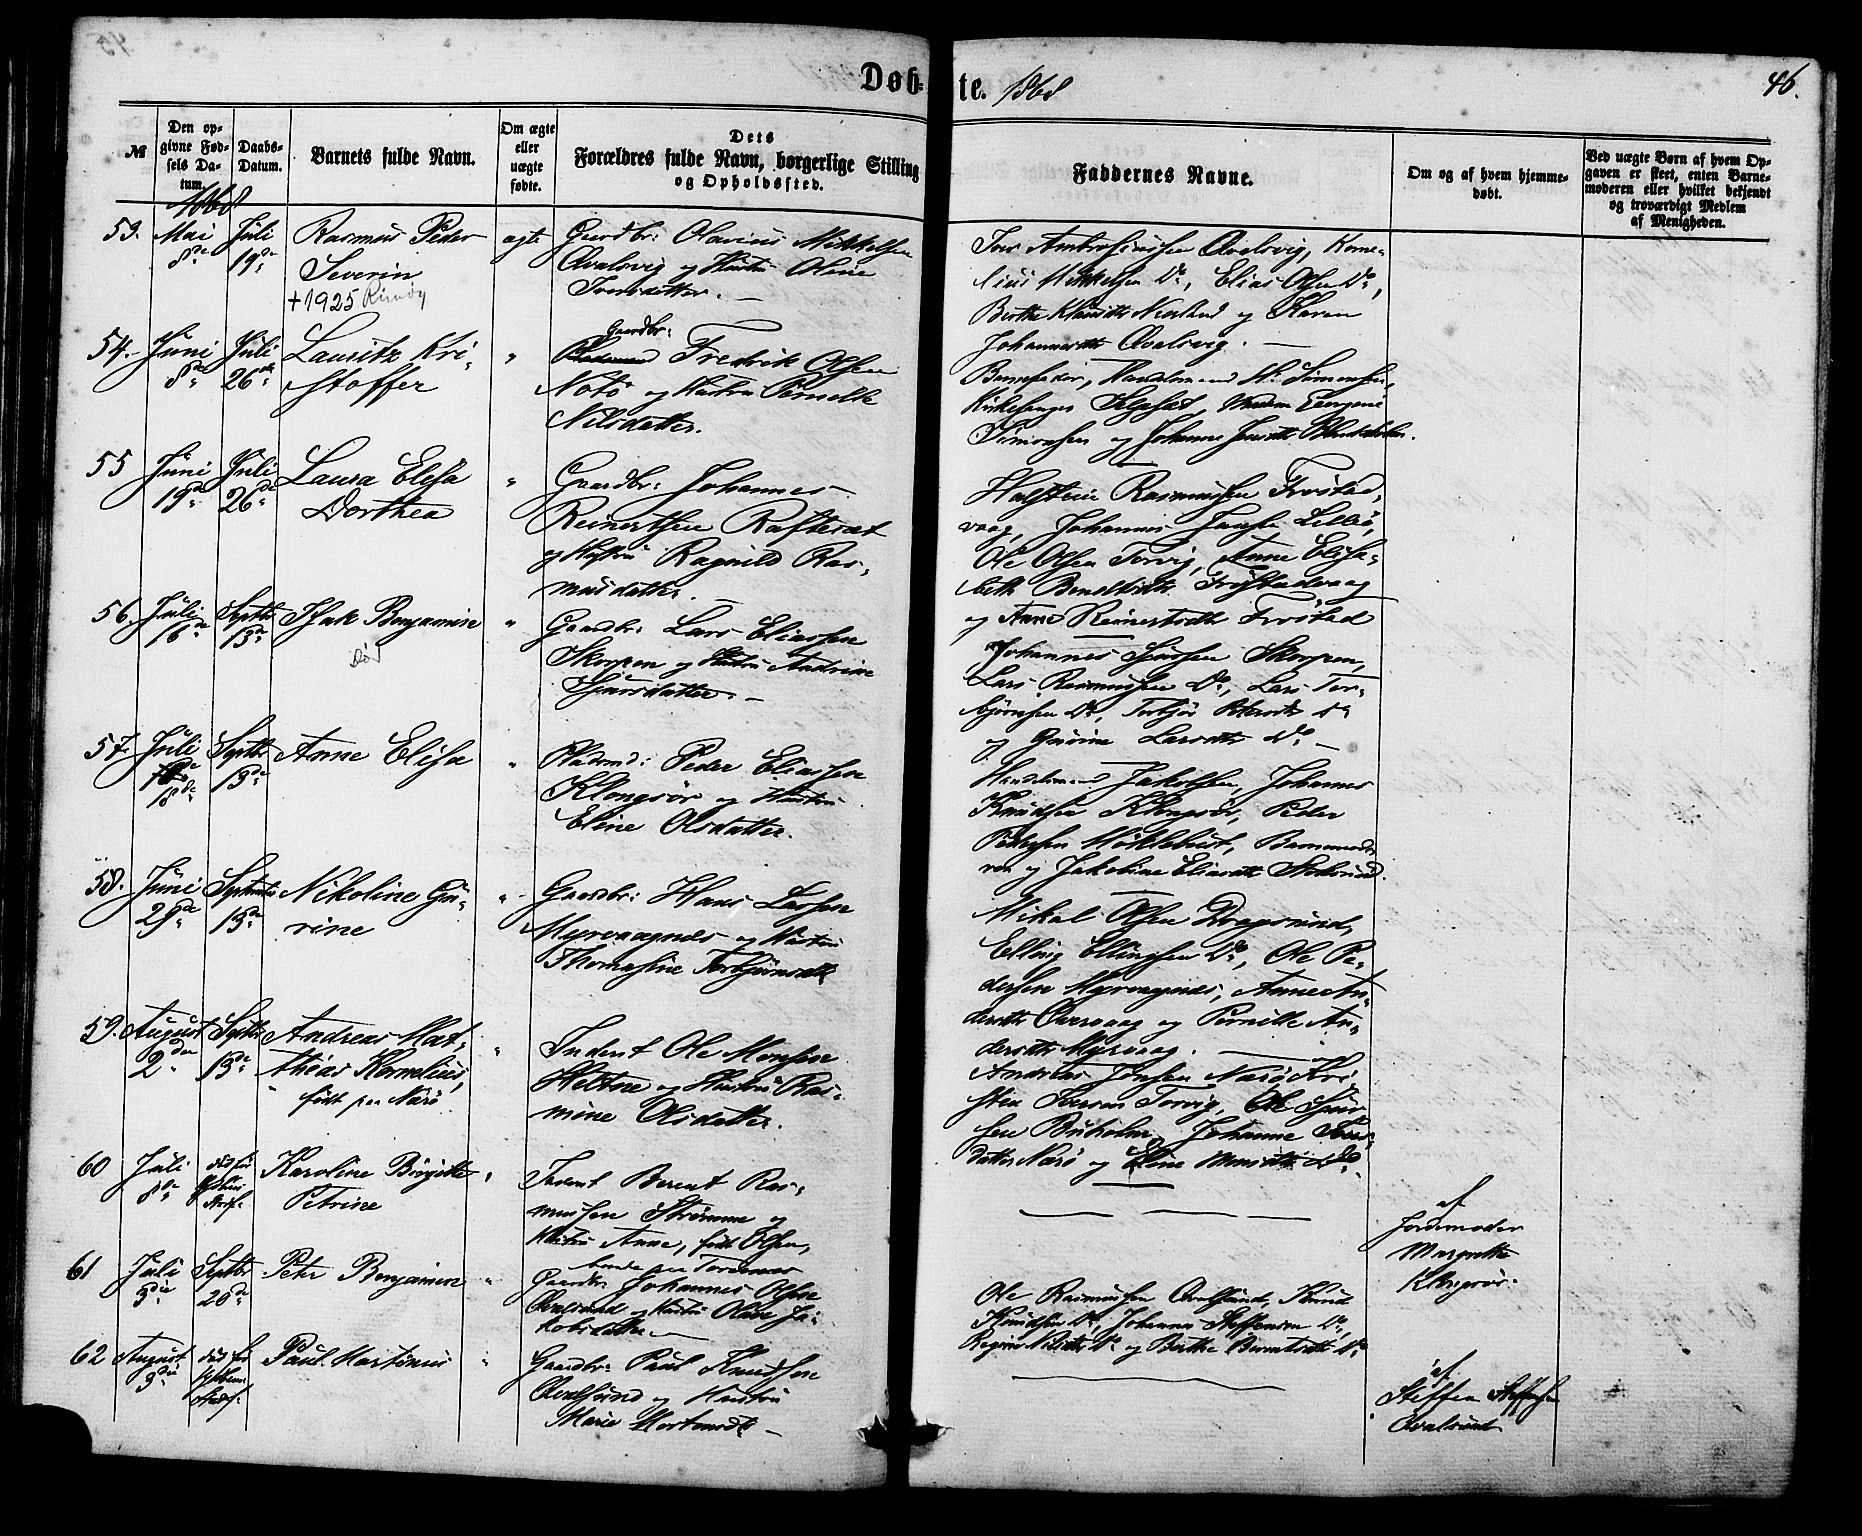 Døb-
te. 1868
46.
№
Den opgivne Fødsels Datum.
Daabs-Datum.
Barnets fulde Navn.
Om ægte eller uægte fødte.
Dets Forældres fulde Navn, borgerlige Stilling og Opholdssted.
Faddernes Navne.
Om og af hvem hjemmedøbt.
Ved uægte Børn af hvem Opgaven er skeet, enten Barnemoderen eller hvilket bekjendt og troværdigt Medlem af Menigheden.
1868
53. Mai 8de Juli 19de Rasmus Peder Severin ægte Gaardbr: Olavius Mikkelsen
Qvalsvig og Hustru Oline
Iversdatter. —
+1925 Rimøy
Iver Ambrosiussen Qvalsvig, Korne-
lius Mikkelsen Do, Elias Olsen Do,
Johannesdtr Qvalsvig. —
54. Juni 8de Juli 26de Lauritz Kri-
stoffer
" Gaardbr:
Fredrik Olsen
Notø og Hustru Pernille
Nilsdatter.
Barnefader, Handelsmand Simonsen,
Kirkesanger
Simonsen og Johanne
55 Juni 19de Juli 26de Laura Elisa
Dorthea
" Gaardbr: Johannes
Reinertsen Rafteset
og Hustru Ragnild Ras-
musdatter.
Rasmussen Frøstad-
vaag, Johannes
Ole Olsen Torvig, Anne Elisa-
beth Frøstadvaag
og Anne Reinertsdtr Frøstad
56. Juli 16de Septbr 13de Isak Benjamin
død
" Gaardbr: Lars Eliassen
Skorpen og Hustru Andrine
Sjursdatter. —
Johannes Sjursen Skorpen,
Lars Rasmussen Do, Lars Tor-
bjørnsen Do,
og Larsdtr Do —
57. Juli 18de Septbr 13de Anne Elisa
" Pladsmd: Peder Eliassen
Klongsør og Hustru
Eline Olsdatter.
Handelsmand Jakobsen, Johannes
Knudsen Klongsør, Peder
Pedersen Myklebust, Barnemode-
ren og Jakobine Eliasdtr
58. Juni 29de Septembr 13de Nikoline Gu-
rine
" Gaardbr: Hans Larsen
Myrvaagnes og Hustru
Thomasine Torbjørnsdtr
Mikal Olsen Dragsund,
Elling Ellingsen Do, Ole Pe-
dersen Myrvaagnes, Anne An-
dersdtr og Pernille An-
dersdtr Myrvaag.
59. August 2den Septbr 13de Andreas Mat-
thias Kornelius,
født paa Nærø
" Inderst Ole Monsen
og Hustru Ras-
mine Olsdatter.
Andreas Jonsen Nærø, Kri-
sten Iversen Torvig, Ole Sjur-
sen Buholm, Johanne Iver-
datter Nærø og Eline Do.
60 Juli 8de død før
Karoline Birgitte
Petrine
" Inderst Berent Ras-
mussen Strømme og
Hustru Anne, født Olsen,
af
Jordemoder
Margrethe
Klongsør.
61 Juli 3die Septbr 20de Peter Benjamin
" Gaardbr: Johannes Olsen
Qvalsund og Hustru Oline Ja-
kobsdatter —
Ole Rasmussen Qvalsund, Knud
Knudsen Do, Johannes Steffensen Do,
Do og Berthe Berntsdtr Do
62 August 3die død før
Paul Martinus
" Gaardbr: Paul Knudsen
Qvalsund og Hustru
Marie Mortensdtr —
af
Steffen Steffensen
Qvalsund